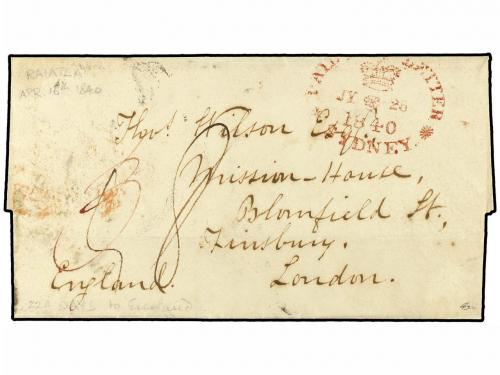 RAIATEA
APR. 18th 1840
PAID LETTER
JY 28
1840
SYDNEY
Thos. Wilson Esqr.
Mission-House,
Blomfield St.,
Finsbury.
London.
England.
8
to England